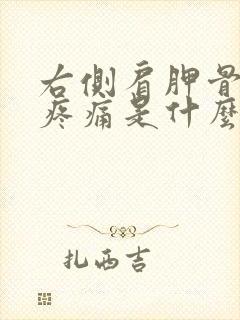 右側肩胛骨
疼痛是什麼
扎西吉